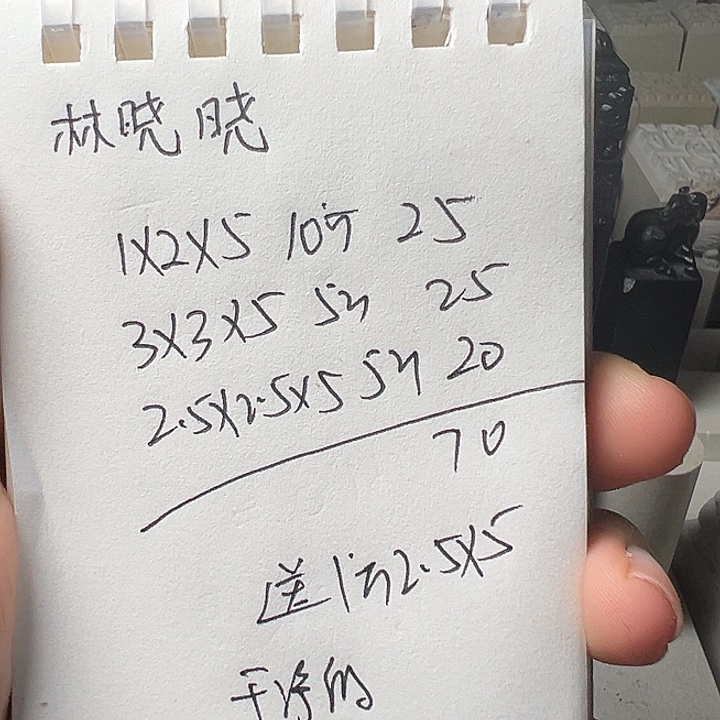 林晓晓
1X2X5 10方 25
3X3X5 5方 25
2.5X2.5X5 5方 20
70
送1方2.5X5
干净的